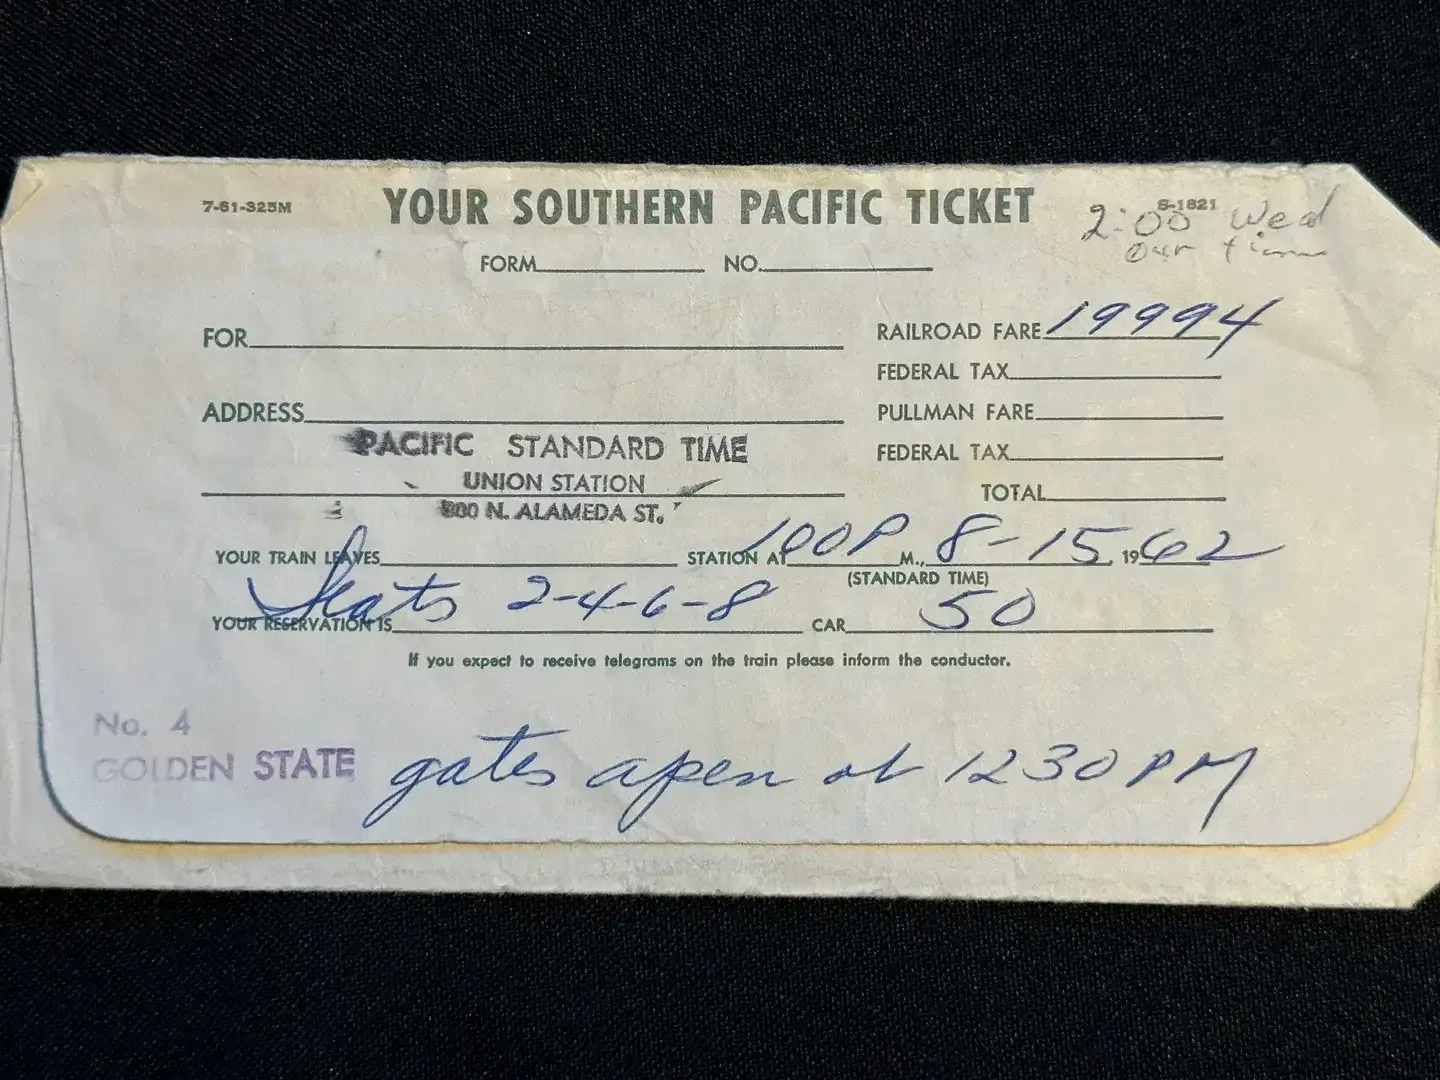 7-61-325M YOUR SOUTHERN PACIFIC TICKET S-1821
2:00 Wed
our time
FORM NO.
FOR RAILROAD FARE 19994
FEDERAL TAX
ADDRESS PULLMAN FARE
PACIFIC STANDARD TIME FEDERAL TAX
UNION STATION TOTAL
800 N. ALAMEDA ST.
YOUR TRAIN LEAVES STATION AT 100P M., 8-15, 1962
(STANDARD TIME)
YOUR RESERVATION IS Seats 2-4-6-8 CAR 50
If you expect to receive telegrams on the train please inform the conductor.
No. 4
GOLDEN STATE gates open at 1230 PM